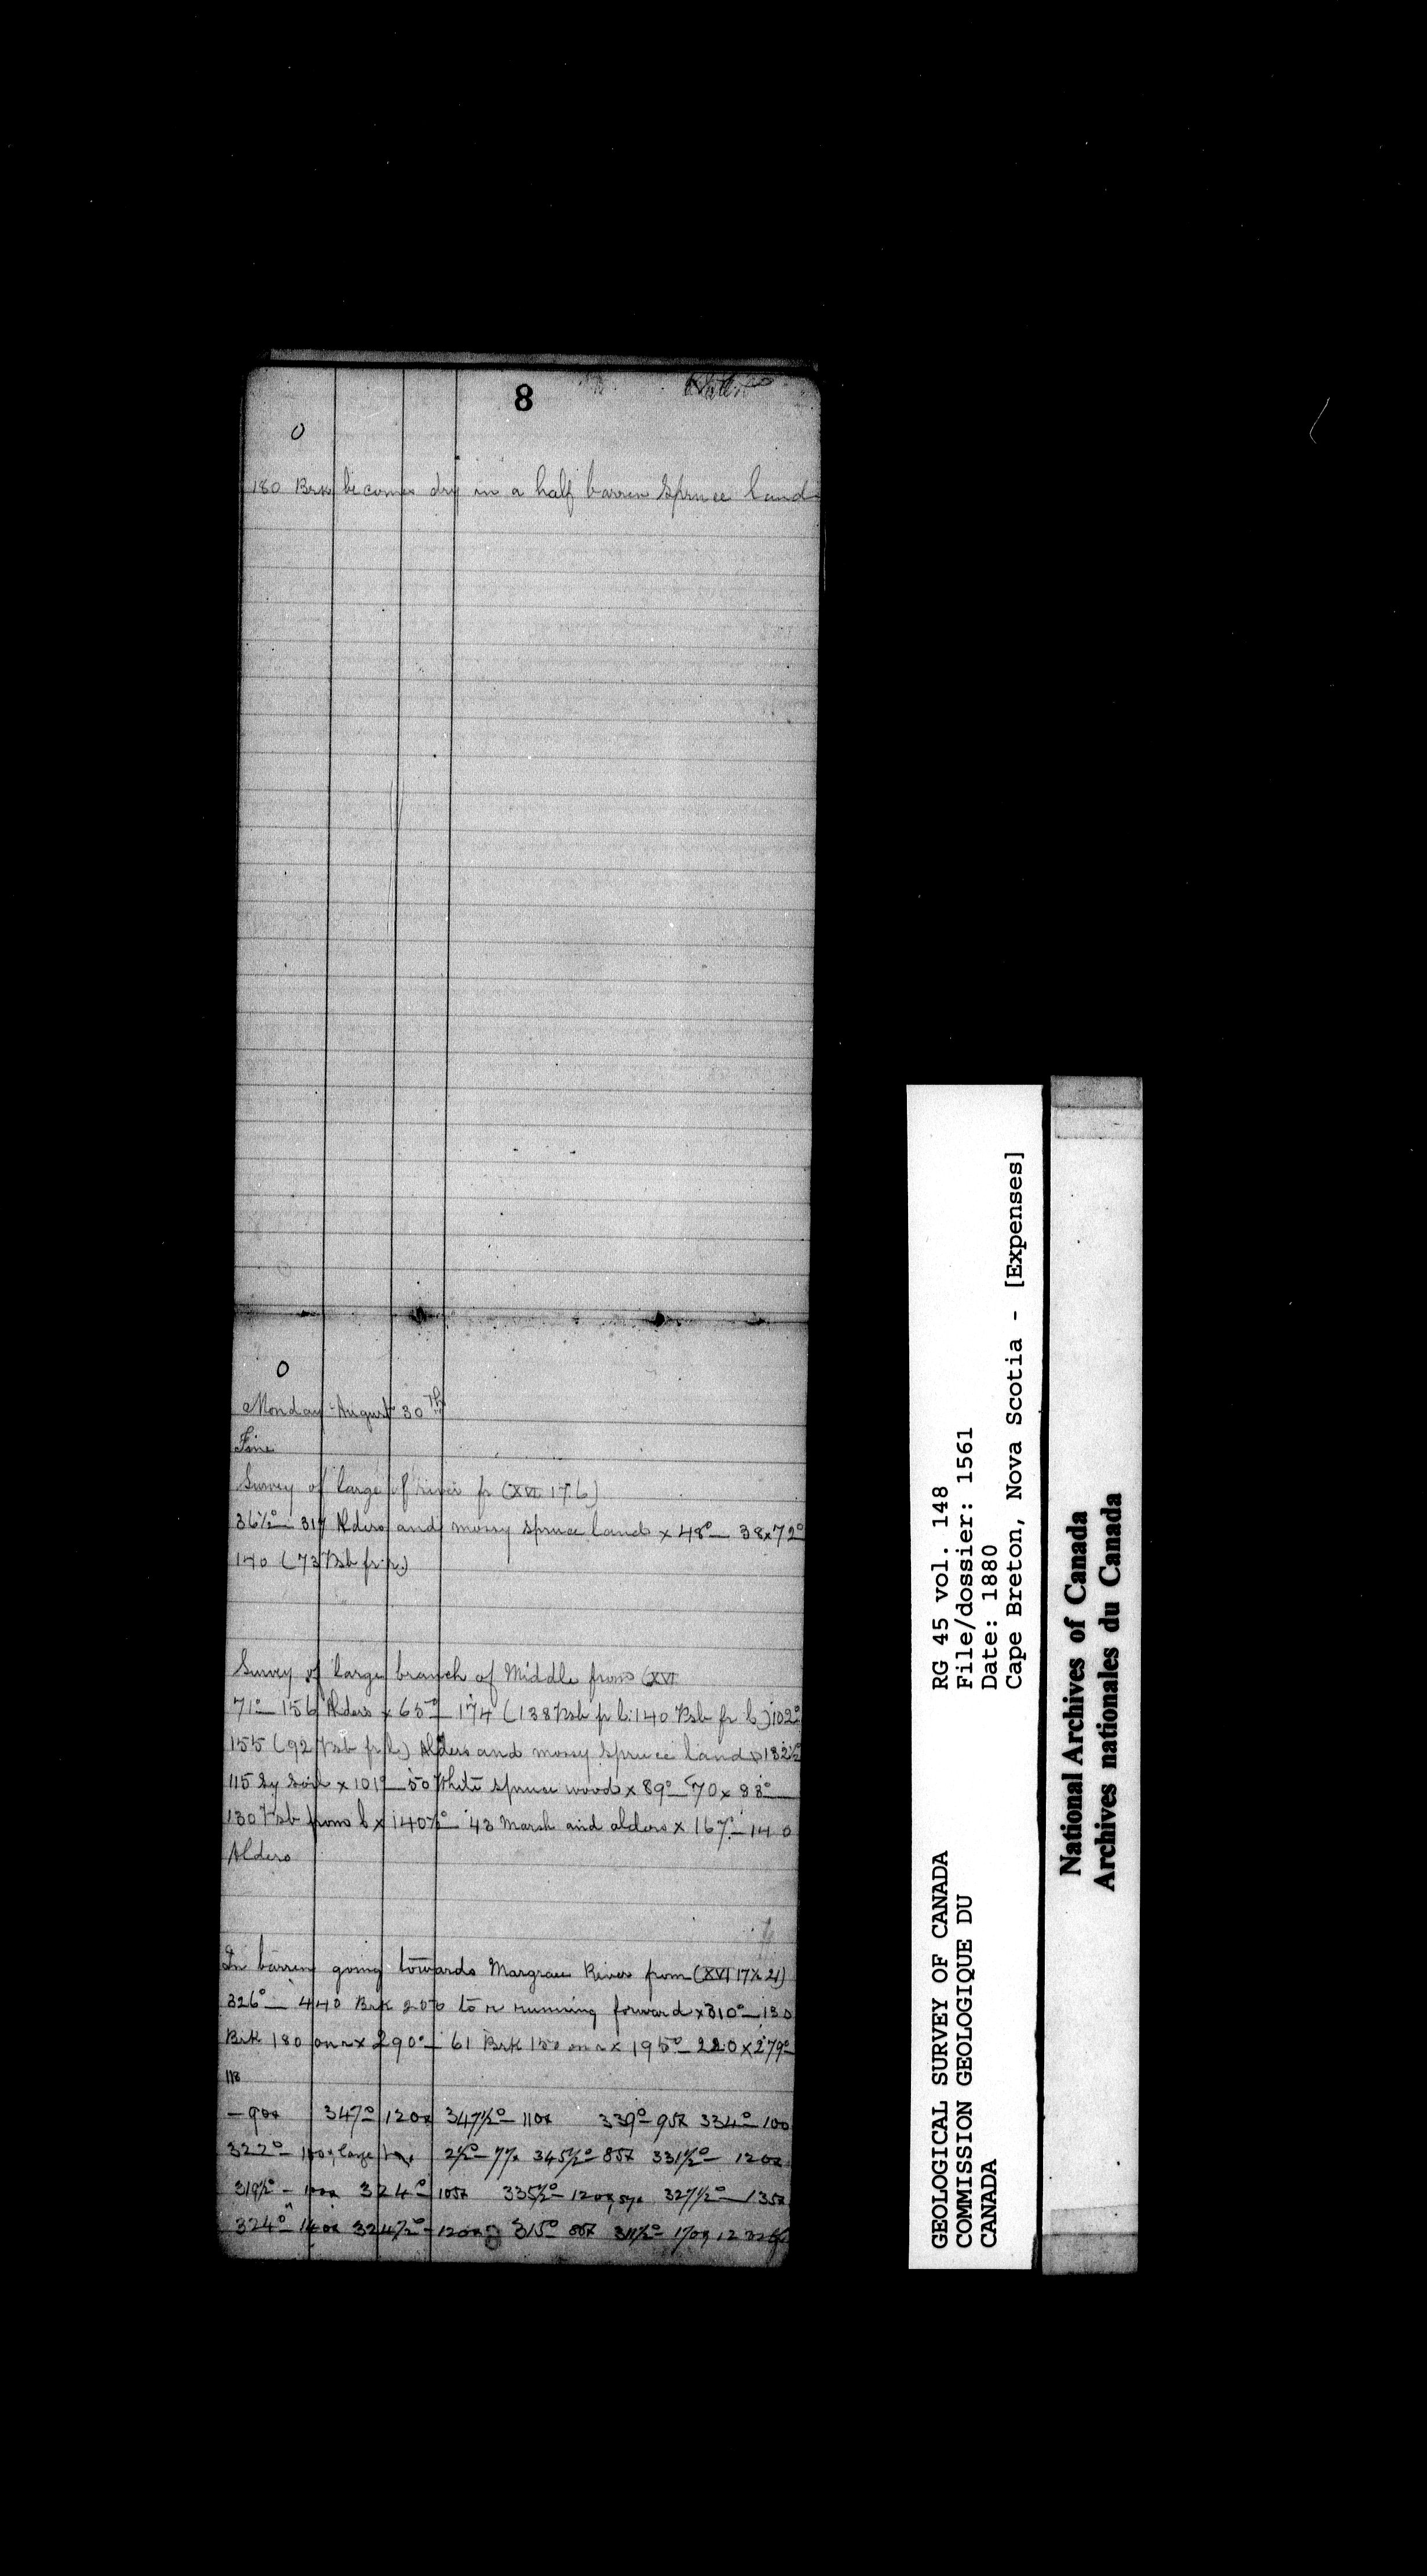 8
0
180 Brk becomes dry in a half barren spruce land
0
Monday August 30th
Fine
Survey of large of river fr (XVI 17.6)
36½°— 317 Alders and mossy spruce land x 48°— 38 x 72°
140 (73 Vsb fr r.)
Survey of large branch of Middle from (XVI
71°— 156 Alders x 65°— 174 (138 Vsb fr l. 140 Vsb fr l.) 102°
155 (92 Vsb fr l.) Alders and mossy spruce land x 182½°
115 Sy Soil x 101°— 50 White spruce wood x 89°— 70 x 88°—
130 Vsb from l x 140½°— 43 Marsh and alders x 167°— 140
Alders
In barren going towards Margraee River from (XVI 17 x 21)
326°— 440 Brk 200 to r running forward x 310°— 130
Brk 180 on r x 290°— 61 Brk 150 on r x 195°— 220 x 279°—
118
— 90x 347°— 120x 347½°— 110x 339°— 95x 334°— 100
322°— large 2½°— 77x 345½°— 85x 331½°— 120x
319½°— 324°— 105x 335½°— 120x 327½°— 135x
324°— 140x 324½°— 120x 315°— 85x 311½°— 170x
RG 45 vol. 148
File/dossier: 1561
Date: 1880
Cape Breton, Nova Scotia - [Expenses]
GEOLOGICAL SURVEY OF CANADA
COMMISSION GEOLOGIQUE DU
CANADA
National Archives of Canada
Archives nationales du Canada